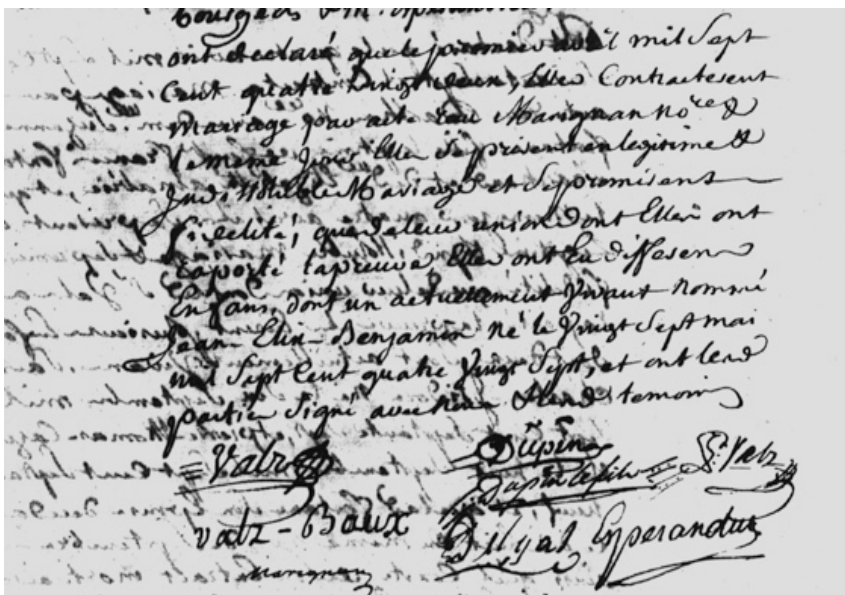 ont declaré que le premier avril mil Sept
Cent quatre Vingt deux, Elles Contracterent
Mariage par acte Eau Marignan No.re &
le meme jour Elles Se prirent en legitime &
Indissoluble Mariage et Se promirent
fidelité, que de leur union dont Elles ont
raporté la preuve, Elles ont Eu differens
Enfans, dont un actuellement Vivant nommé
Jean Elie Benjamin Né le Vingt Sept mai
mil Sept Cent quatre Vingt Sept, et ont lesd
parties Signé avec Nous & lesd. temoins
Valz
Dupin
Dupin le fils
Valz
Valz-Baux
Bilyal
Esperandieu
Marignan